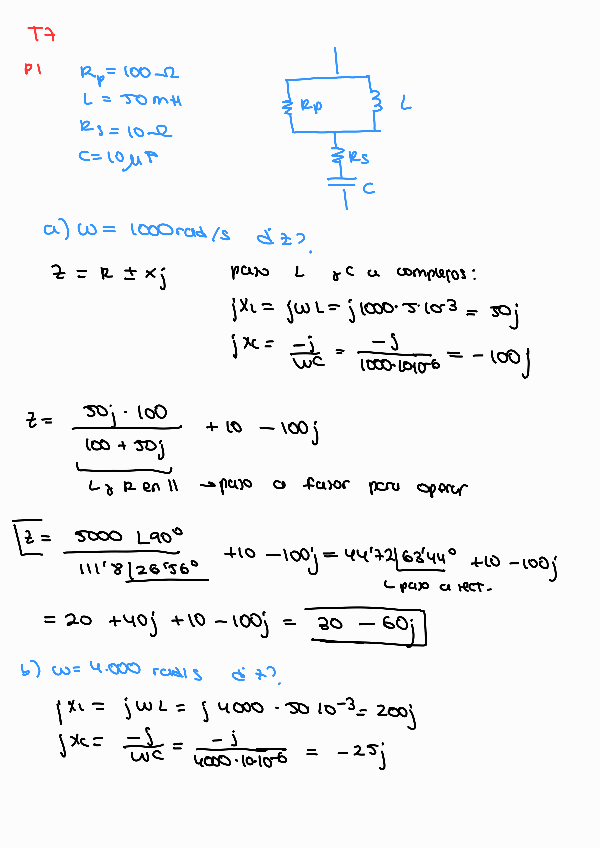 T7
P1
Rp = 100 Ω
L = 50 mH
Rs = 10 Ω
C = 10 μF
Rp
L
Rs
C
a) ω = 1000 rad/s ¿Z?
Z = R ± xj
paso L y C a complejos:
jXL = jωL = j1000·5·10-3 = 50j
jXC = -j/ωC = -j/1000·10·10-6 = -100j
Z = 50j · 100 / 100 + 50j + 10 - 100j
L y R en || → paso a fasor para operar
Z = 5000 ∠90° / 111'8 ∠26'56° + 10 - 100j = 44'72 ∠63'44° + 10 - 100j
↳ paso a rect.
= 20 + 40j + 10 - 100j = 30 - 60j
b) ω = 4.000 rad/s ¿Z?
jXL = jωL = j 4000 · 50 10-3 = 200j
jXC = -j/ωC = -j/4000·10·10-6 = -25j